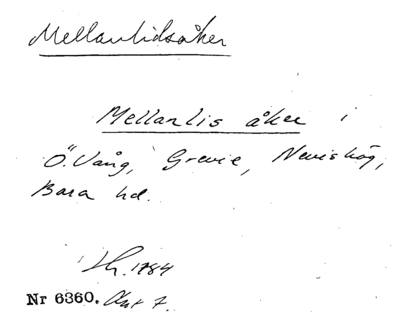 Mellanlidsåker
Mellanlis åker i
Ö. Vång, Grevie, Nevishög,
Bara hd.
Lh. 1784
Nr 6360. Akt 7.